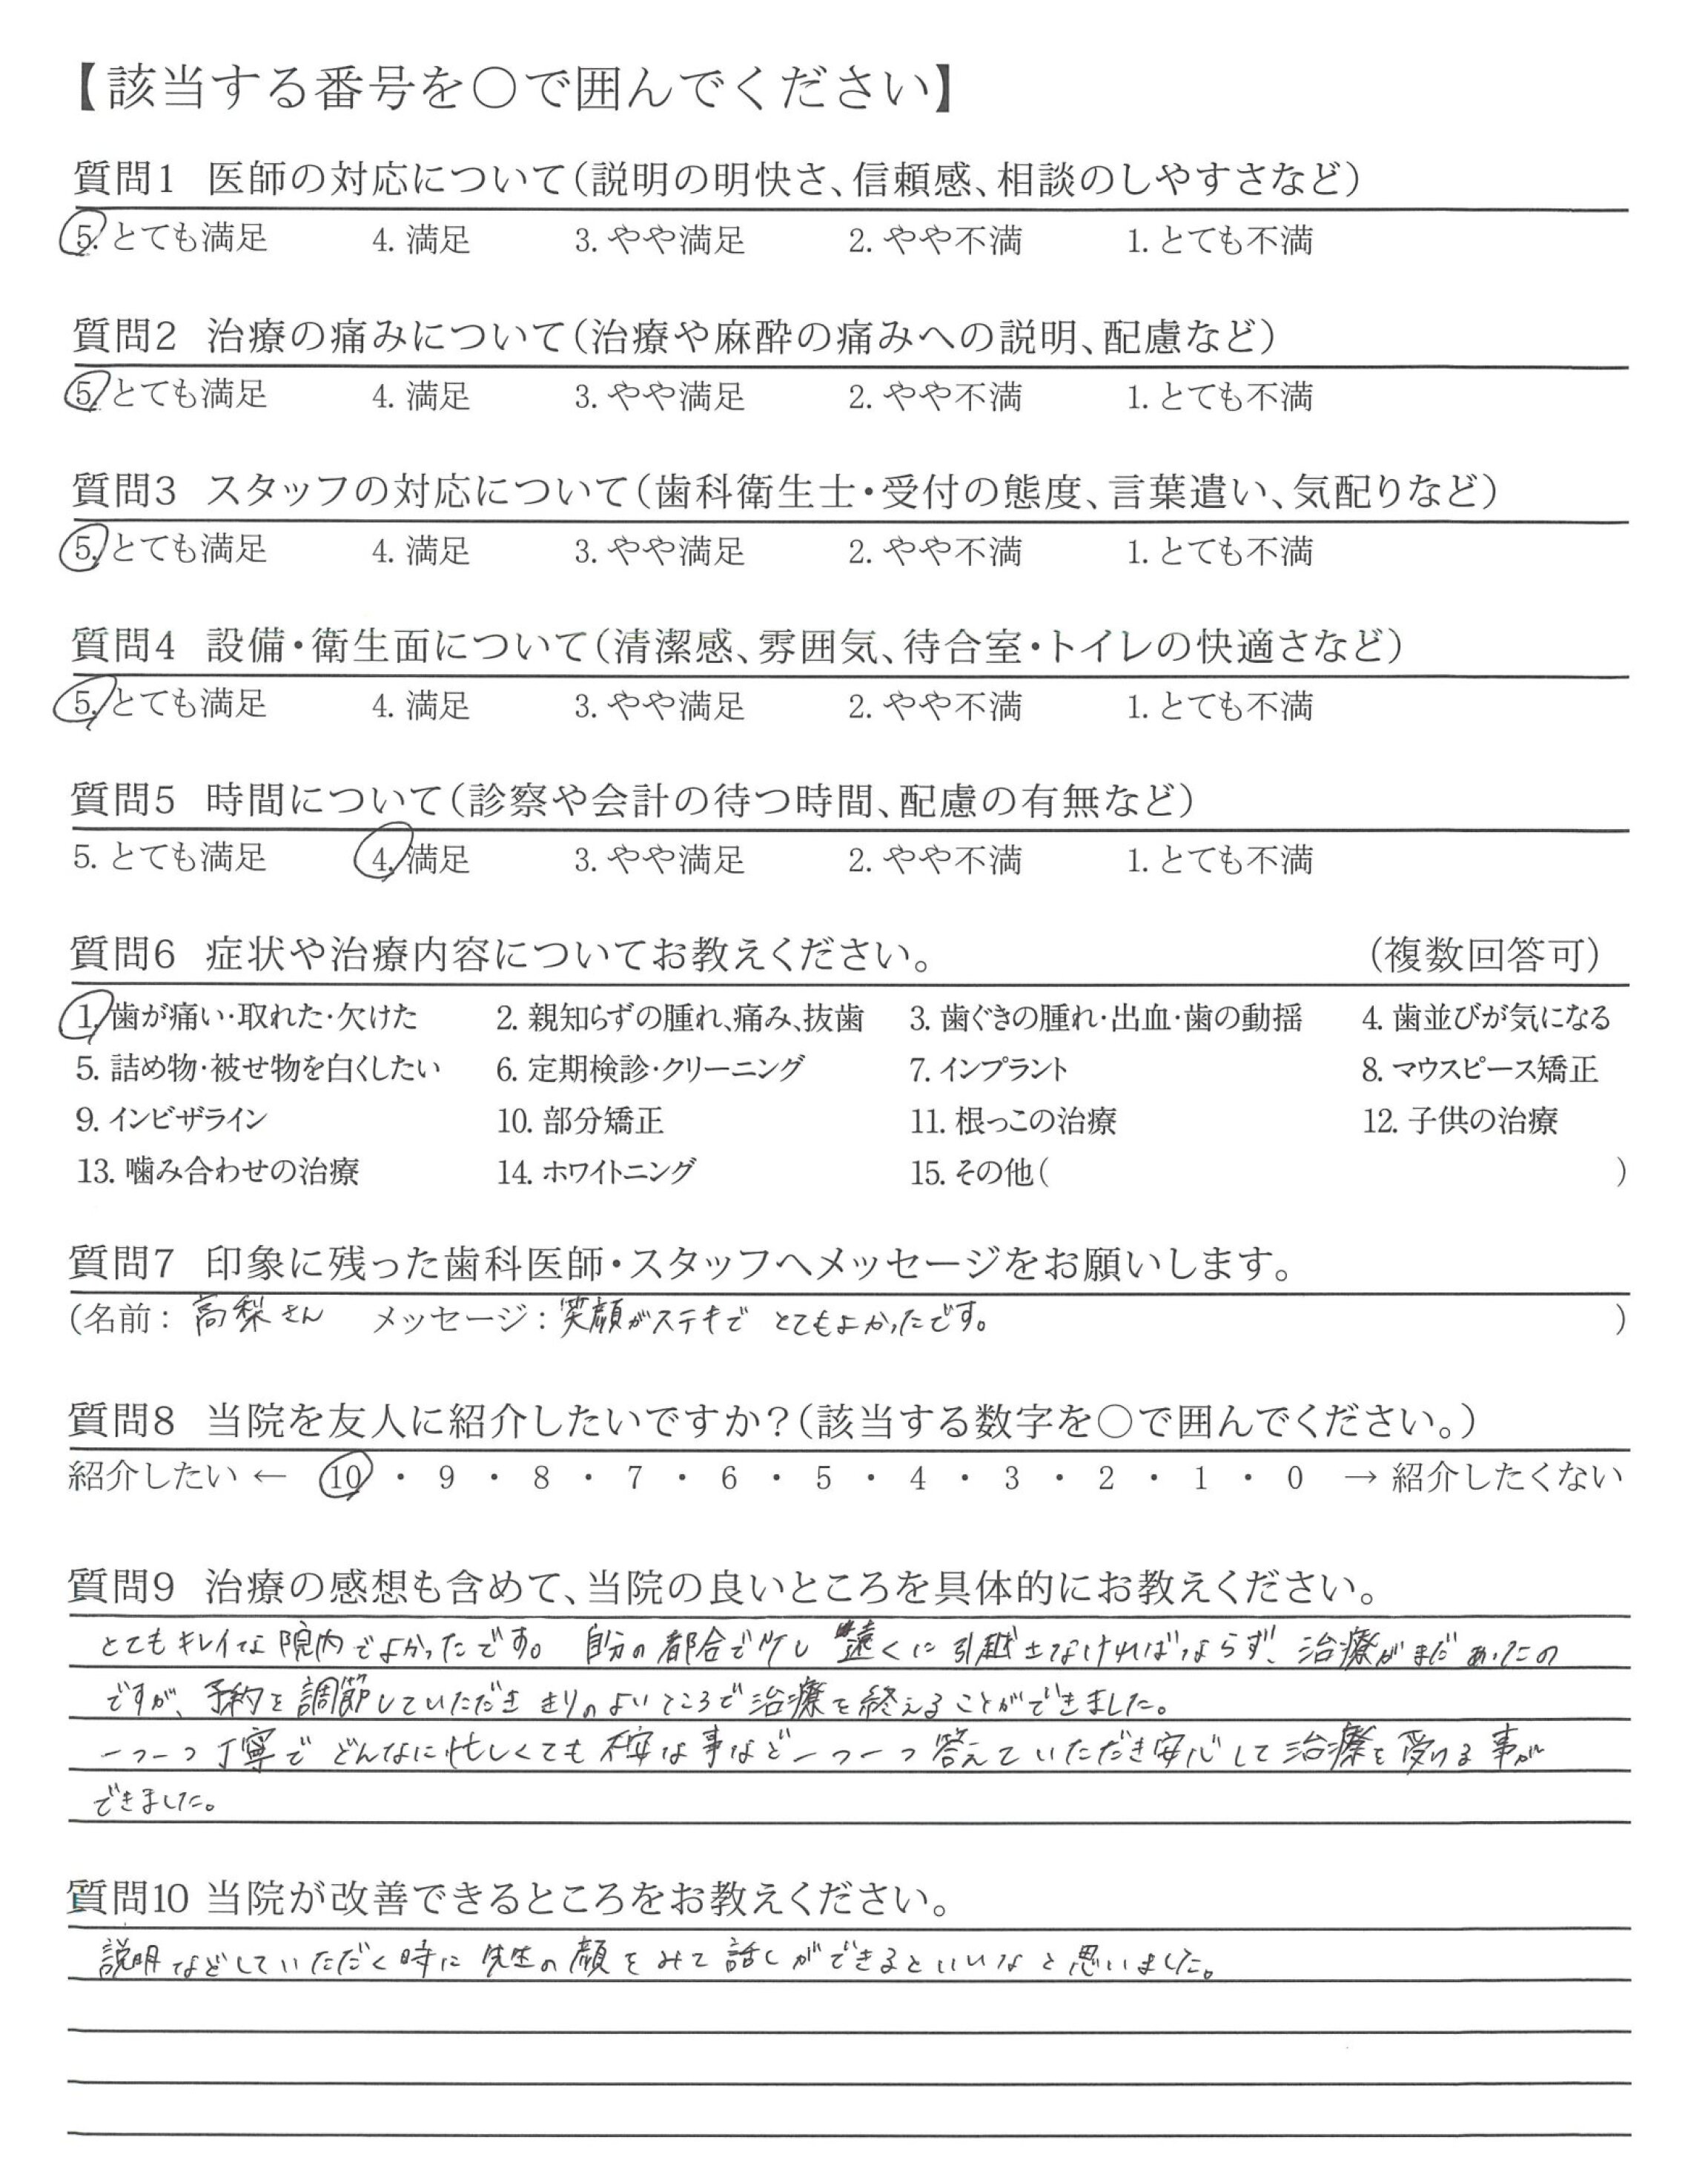 【該当する番号を○で囲んでください】
質問1 医師の対応について(説明の明快さ、信頼感、相談のしやすさなど)
5. とても満足 4. 満足 3. やや満足 2. やや不満 1. とても不満
質問2 治療の痛みについて(治療や麻酔の痛みへの説明、配慮など)
5. とても満足 4. 満足 3. やや満足 2. やや不満 1. とても不満
質問3 スタッフの対応について(歯科衛生士・受付の態度、言葉遣い、気配りなど)
5. とても満足 4. 満足 3. やや満足 2. やや不満 1. とても不満
質問4 設備・衛生面について(清潔感、雰囲気、待合室・トイレの快適さなど)
5. とても満足 4. 満足 3. やや満足 2. やや不満 1. とても不満
質問5 時間について(診察や会計の待つ時間、配慮の有無など)
5. とても満足 4. 満足 3. やや満足 2. やや不満 1. とても不満
質問6 症状や治療内容についてお教えください。 (複数回答可)
1. 歯が痛い・取れた・欠けた 2. 親知らずの腫れ、痛み、抜歯 3. 歯ぐきの腫れ・出血・歯の動揺 4. 歯並びが気になる
5. 詰め物・被せ物を白くしたい 6. 定期検診・クリーニング 7. インプラント 8. マウスピース矯正
9. インビザライン 10. 部分矯正 11. 根っこの治療 12. 子供の治療
13. 噛み合わせの治療 14. ホワイトニング 15. その他( )
質問7 印象に残った歯科医師・スタッフへメッセージをお願いします。
(名前: 高梨さん メッセージ: 笑顔がステキで とてもよかったです。 )
質問8 当院を友人に紹介したいですか?(該当する数字を○で囲んでください。)
紹介したい ← 10 ・ 9 ・ 8 ・ 7 ・ 6 ・ 5 ・ 4 ・ 3 ・ 2 ・ 1 ・ 0 → 紹介したくない
質問9 治療の感想も含めて、当院の良いところを具体的にお教えください。
とてもキレイな院内でよかったです。 自分の都合で少し 遠くに引越さなければならず、治療がまだあったの
ですが、予約を調節していただき きりのよいところで治療を終えることができました。
一つ一つ丁寧で どんなに忙しくても 不安な事など一つ一つ答えていただき安心して治療を受ける事が
できました。
質問10 当院が改善できるところをお教えください。
説明などしていただく時に 先生の顔をみて話しができるといいなと思いました。